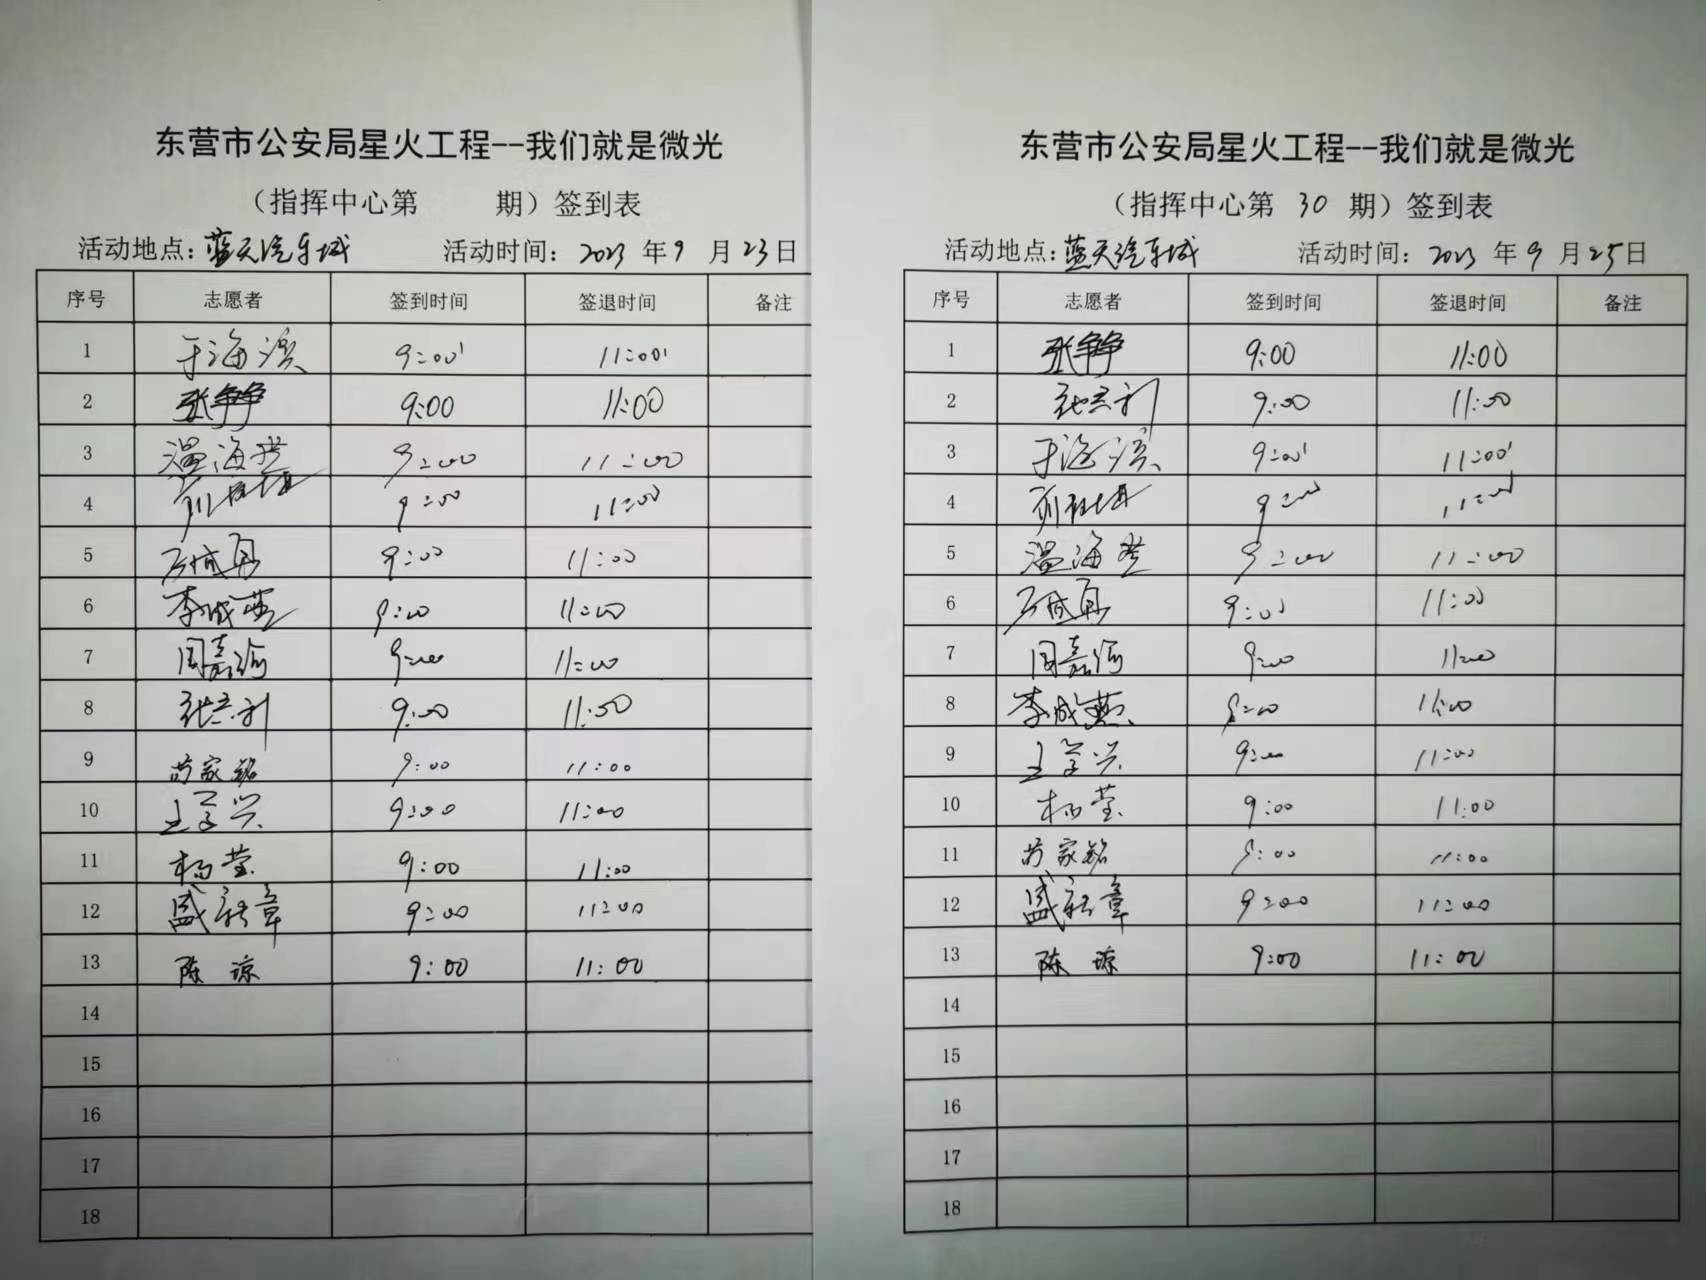 东营市公安局星火工程--我们就是微光
（指挥中心第 期）签到表
活动地点：蓝天汽车城 活动时间：2023 年 9 月 23 日
序号 志愿者 签到时间 签退时间 备注
1 于海滨 9:00 11:00
2 张争争 9:00 11:00
3 温海燕 9:00 11:00
4 9:00 11:00
5 9:00 11:00
6 李成燕 9:00 11:00
7 周嘉河 9:00 11:00
8 9:00 11:00
9 苏家铭 9:00 11:00
10 王学兴 9:00 11:00
11 杨莹 9:00 11:00
12 盛新章 9:00 11:00
13 陈琼 9:00 11:00
14
15
16
17
18
东营市公安局星火工程--我们就是微光
（指挥中心第 30 期）签到表
活动地点：蓝天汽车城 活动时间：2023 年 9 月 25 日
序号 志愿者 签到时间 签退时间 备注
1 张争争 9:00 11:00
2 9:00 11:00
3 于海滨 9:00 11:00
4 9:00 11:00
5 温海燕 9:00 11:00
6 9:00 11:00
7 周嘉河 9:00 11:00
8 李成燕 9:00 11:00
9 王学兴 9:00 11:00
10 杨莹 9:00 11:00
11 苏家铭 9:00 11:00
12 盛新章 9:00 11:00
13 陈琼 9:00 11:00
14
15
16
17
18